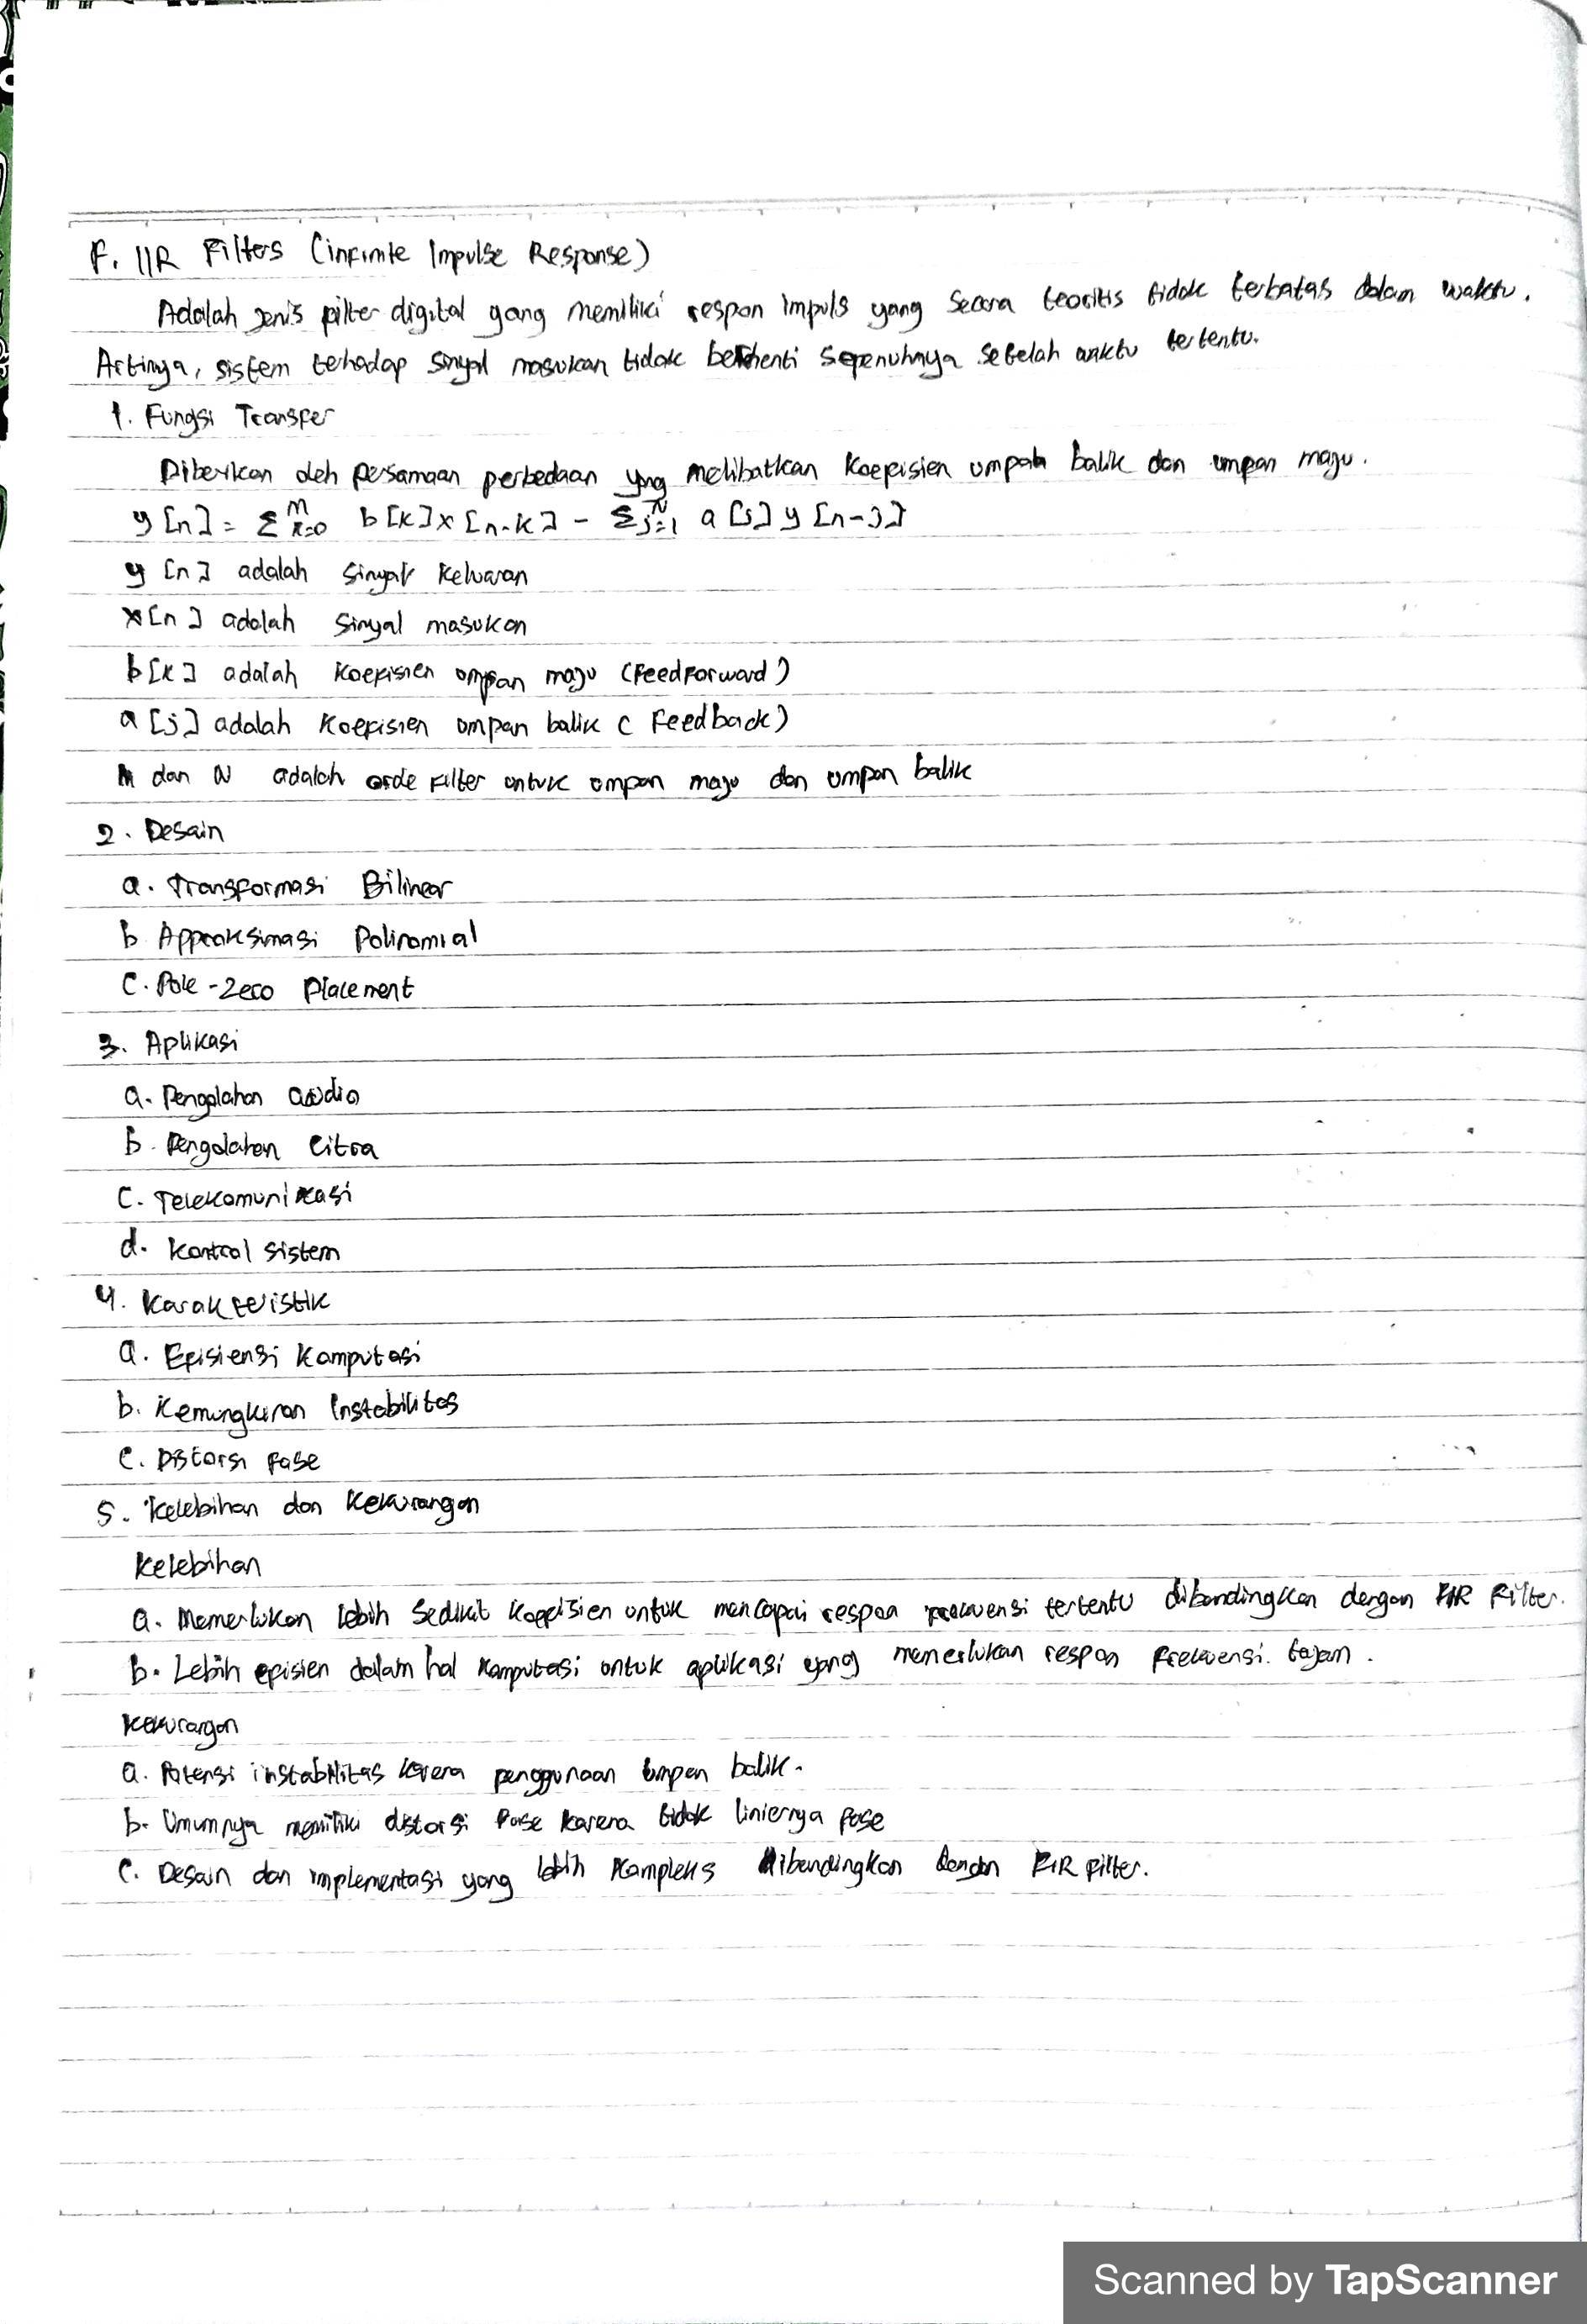 F. IIR Filters (infinite Impulse Response)
Adalah jenis pilter digital yang memiliki respon impuls yang secara teoritis tidak terbatas dalam waktu.
Artinya, sistem tehadap sinyal masukan tidak berhenti sepenuhnya setelah waktu tertentu.
1. Fungsi Transfer
Diberikan oleh persamaan perbedaan yng melibatkan koepisien umpan balik dan umpan maju.
y[n] = Σ^M_k=0 b[k]x[n-k] - Σ^N_j=1 a[j]y[n-j]
y[n] adalah sinyal keluaran
x[n] adalah sinyal masukan
b[k] adalah koepisien umpan maju (Feedforward)
a[j] adalah koepisien umpan balik (Feedback)
M dan N adalah orde Filter untuk umpan maju dan umpan balik
2. Desain
a. Transformasi Bilinear
b. Approksimasi Polinomial
c. Pole-Zero Placement
3. Aplikasi
a. Pengolahan audio
b. Pengolahan Citra
c. Telekomunikasi
d. Kontrol sistem
4. Karakteristik
a. Episiensi Komputasi
b. Kemungkinan Instabilitas
c. Distorsi fase
5. Kelebihan dan Kekurangan
Kelebihan
a. Memerlukan lebih sedikit koepisien untuk mencapai respon frekuensi tertentu dibandingkan dengan FIR Filter.
b. Lebih episien dalam hal komputasi untuk aplikasi yang memerlukan respon frekuensi. tajam.
Kekurangan
a. Potensi instabilitas karena penggunaan umpan balik.
b. Umumnya memiliki distorsi fase karena tidak liniernya fase
c. Desain dan implementasi yang lebih kompleks dibandingkan dengan FIR Filter.
Scanned by TapScanner